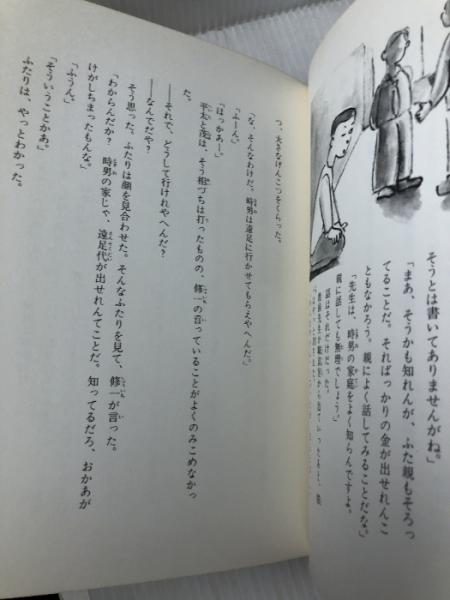 そうとは書いてありませんがね。」
「まあ、そうかも知れんが、ふた親もそろっ
てることだ。そればっかりの金が出せれんこ
ともなかろう。親によく話してみることだな。」
「先生は、時男の家庭をよく知らんですよ。
親に話しても無理でしょう。」
話はそれだけだった。
つ、大きなげんこつをくらった。
「な、そんなわけだ。時男は遠足に行かせてもらえやへんだ。」
「ふーん。」
「はっかあー」
平太と茂は、そう相づちは打ったものの、修一の言っていることがよくのみこめなかっ
た。
――それで、どうして行けれやへんだ?
――なんでだや?
そう思った。ふたりは顔を見合わせた。そんなふたりを見て、修一が言った。
「わからんだか? 時男の家じゃ、遠足代が出せれんてことだ。知ってるだろ、おかあが
けがしちまったもんな。」
「ふうん。」
「そういうことかあ。」
ふたりは、やっとわかった。